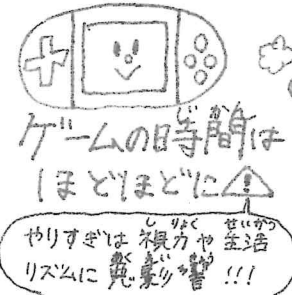 ゲームの時間は
ほどほどに
やりすぎは視力や生活
リズムに悪影響!!!